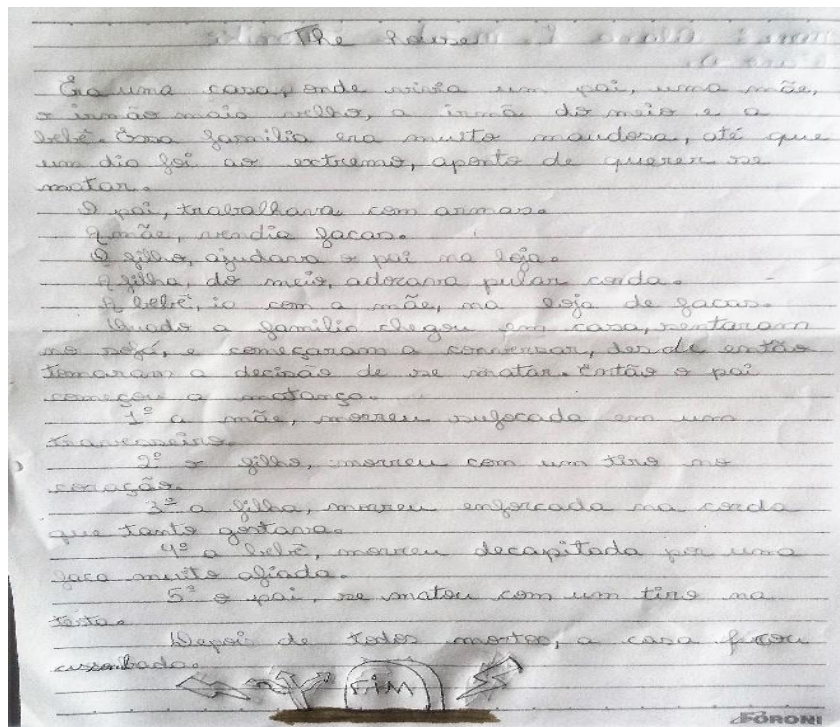 The House
Era uma casa, onde vivia um pai, uma mãe,
o irmão mais velho, a irmã do meio e a
bebê. Essa família era muito maudosa, até que
um dia foi ao extremo, aponto de querer se
matar.
O pai, trabalhava com armas.
A mãe, vendia facas.
O filho, ajudava o pai na loja.
A filha, do meio, adorava pular corda.
A bebê, ia com a mãe, na loja de facas.
Quado a família chegou em casa, sentaram
no sofá, e começaram a conversar, desde então
tomaram a decisão de se matar. Então o pai
começou a matança.
1º a mãe, morreu sufocada em um
travesseiro.
2º o filho, morreu com um tiro no
coração.
3º a filha, morreu enforcada na corda
que tanto gostava.
4º a bebê, morreu decapitada por uma
faca muito afiada.
5º o pai, se matou com um tiro na
testa.
Depois de todos mortos, a casa ficou
assombada.
FIM
FORONI